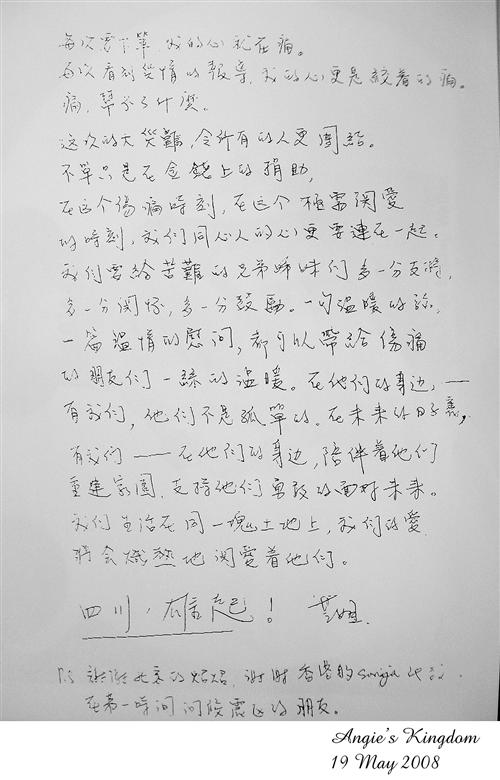 每次要下筆,我的心就在痛。
每次看到災情的報導,我的心更是絞着的痛。
痛,算不了什麼。
这次的大災難,令所有的人更團結。
不單只是在金錢上的捐助,
在这个傷痛時刻,在这个極需関愛
的時刻,我们同心人的心更要連在一起。
我们要給苦難的兄弟姊妹们多一分支持,
多一分関怀,多一分鼓勵。一句溫暖的話,
一篇溫情的慰问,都可以帶給傷痛
的朋友们一絲的溫暖。在他们的身边,一
有我们,他们不是孤單的。在未来的日子裏,
有我们——在他们的身边,陪伴着他们
重建家園,支持他们勇敢的面对未来。
我们生活在同一塊土地上,我们的愛
將会熾熱地関愛着他们。
四川,雄起!
P.S. 謝謝北京的 謝謝香港的
在第一時间问候震区的朋友。
Angie's Kingdom
19 May 2008